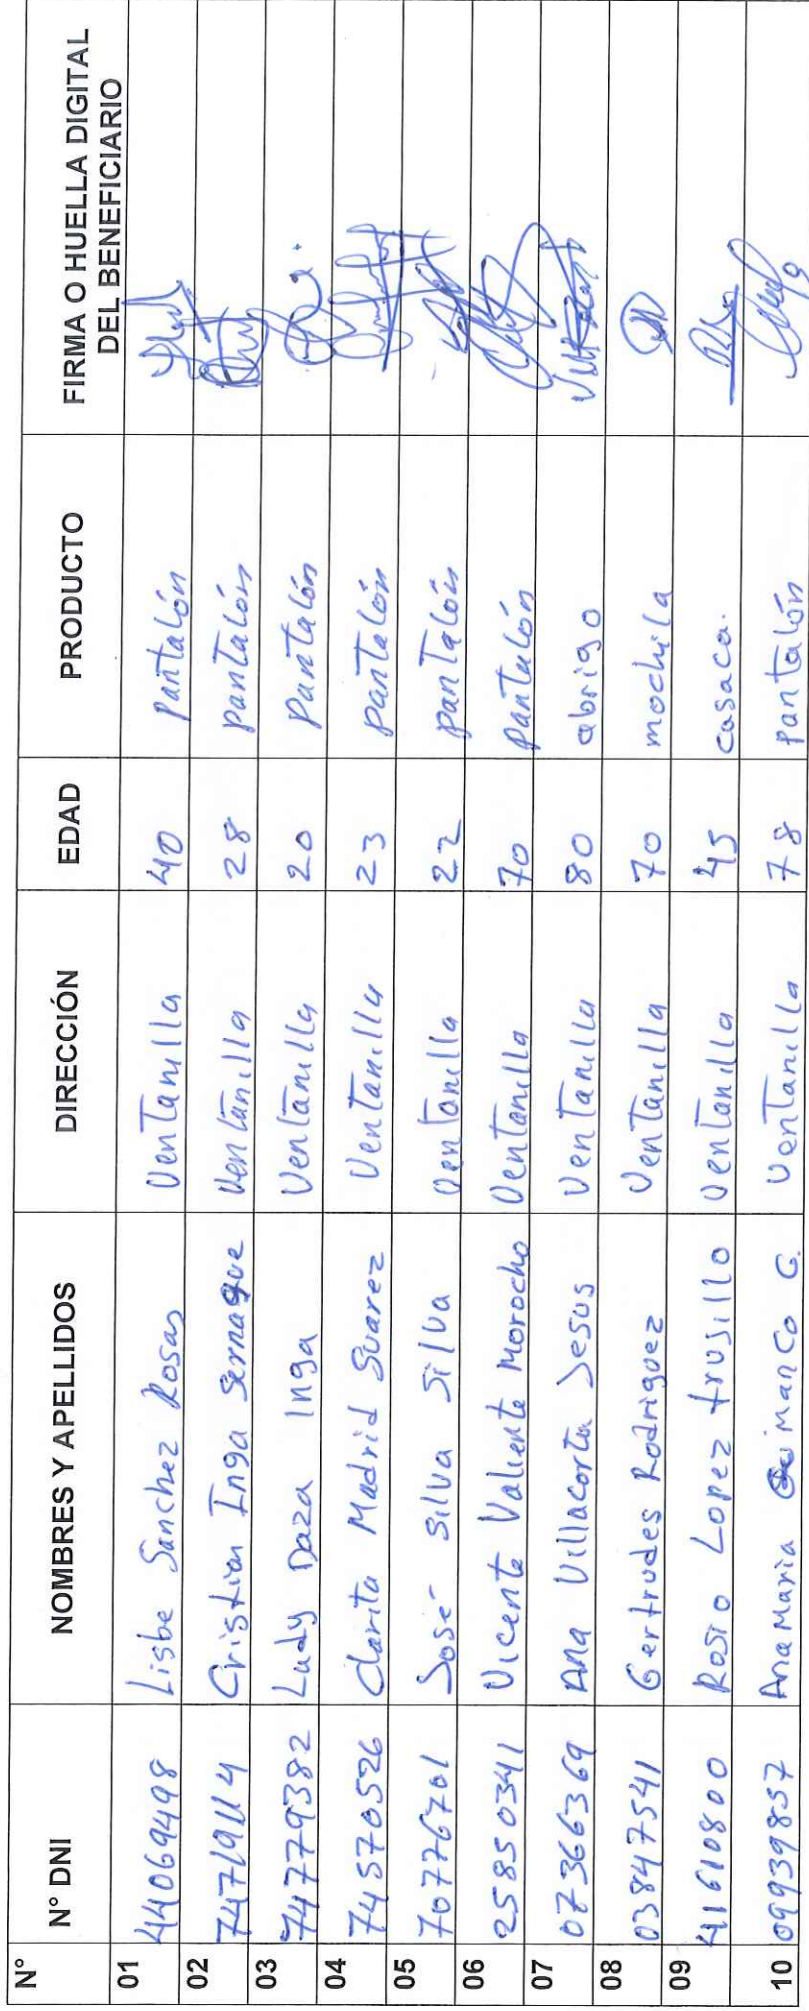 N° N° DNI NOMBRES Y APELLIDOS DIRECCIÓN EDAD PRODUCTO FIRMA O HUELLA DIGITAL
DEL BENEFICIARIO
01 44069498 Lisbe Sanchez Rosas Ventanilla 40 pantalón
02 74719114 Cristian Inga Sernaque Ventanilla 28 pantalón
03 74779382 Ludy Daza Inga Ventanilla 20 pantalón
04 74570526 Clarita Madrid Suarez Ventanilla 23 pantalón
05 70776701 José Silva Silva Ventanilla 22 pantalón
06 25850341 Vicente Valiente Morocho Ventanilla 70 pantalón
07 07366369 Ana Villacorta Jesus Ventanilla 80 abrigo
08 03847541 Gertrudes Rodriguez Ventanilla 70 mochila
09 41610800 Rosio Lopez trusillo Ventanilla 45 casaca.
10 09939857 Ana Maria Quimanco G. Ventanilla 78 pantalón